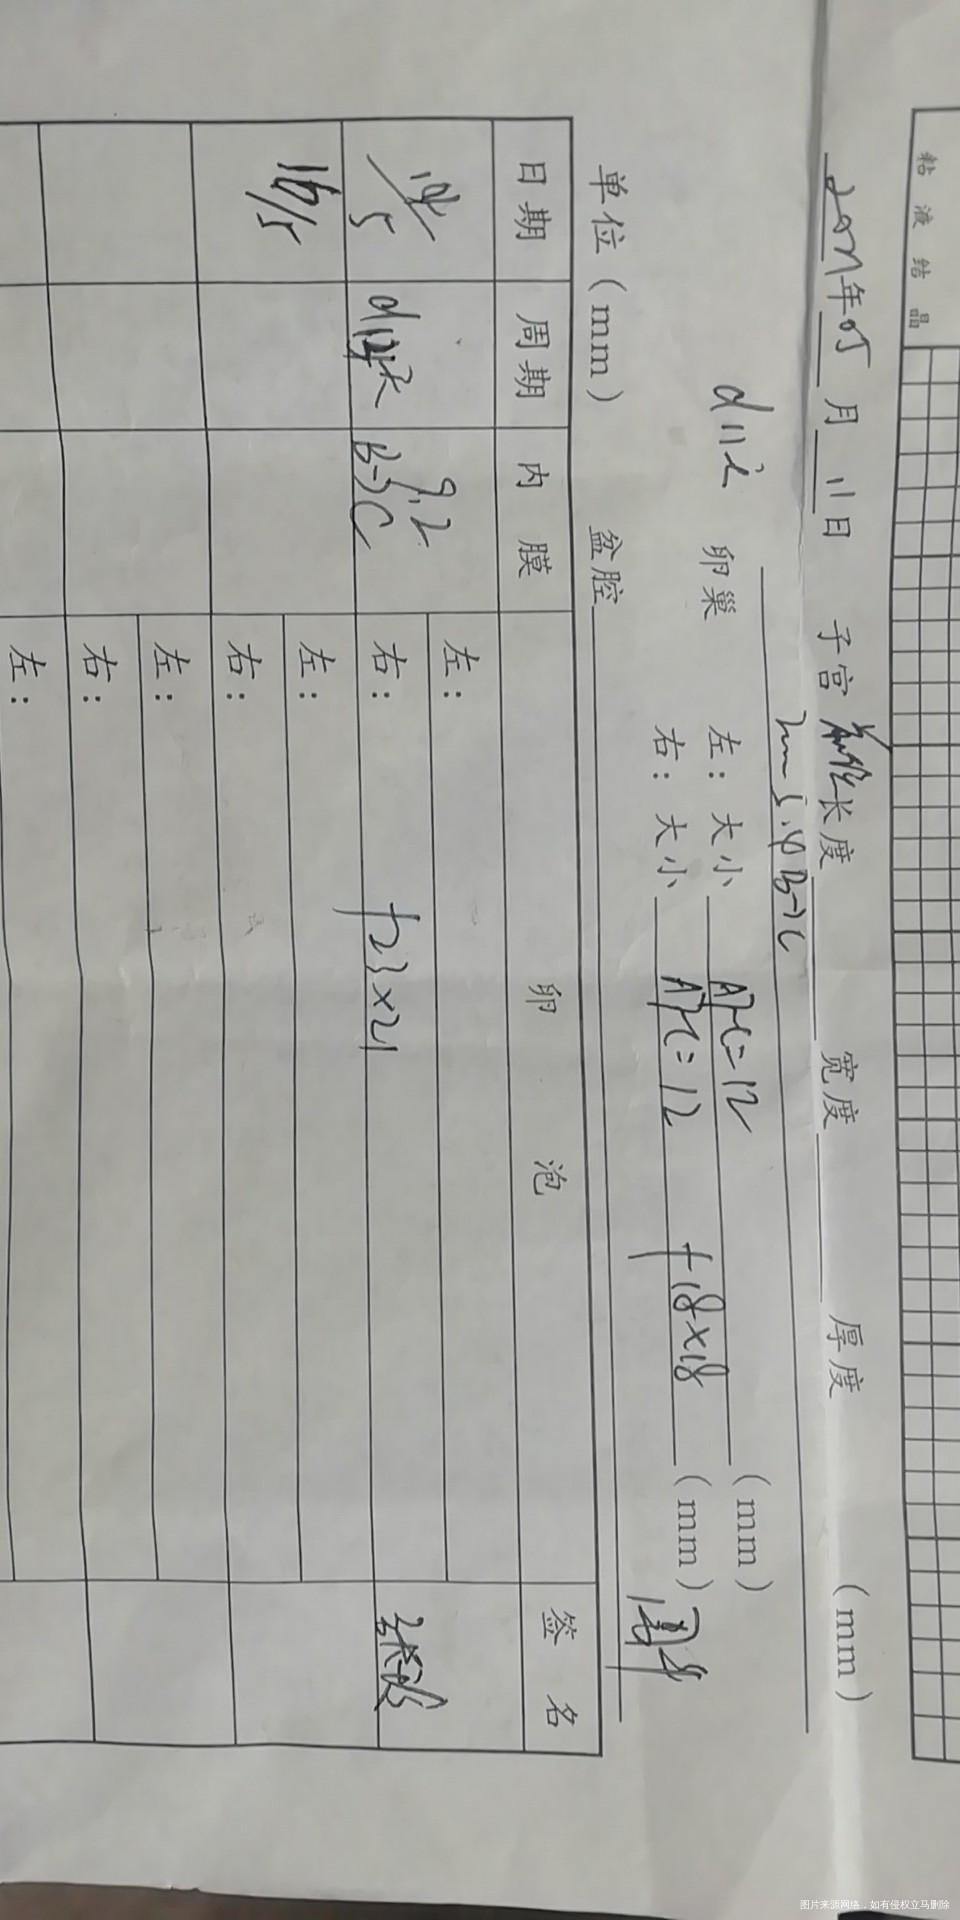 粘液结晶
2021年05月11日 子宫 前位 长度 宽度 厚度 (mm)
5.4 B→C
d11天 卵巢 左：大小 AFC=12 (mm)
右：大小 AFC=12 f18×18 (mm)
单位(mm) 盆腔
日期 周期 内膜 卵泡 签名
14/5 d14天 9.2 B→C 左：
右： f23×21
16/5 左：
右：
左：
右：
左：
图片来源网络，如有侵权立马删除